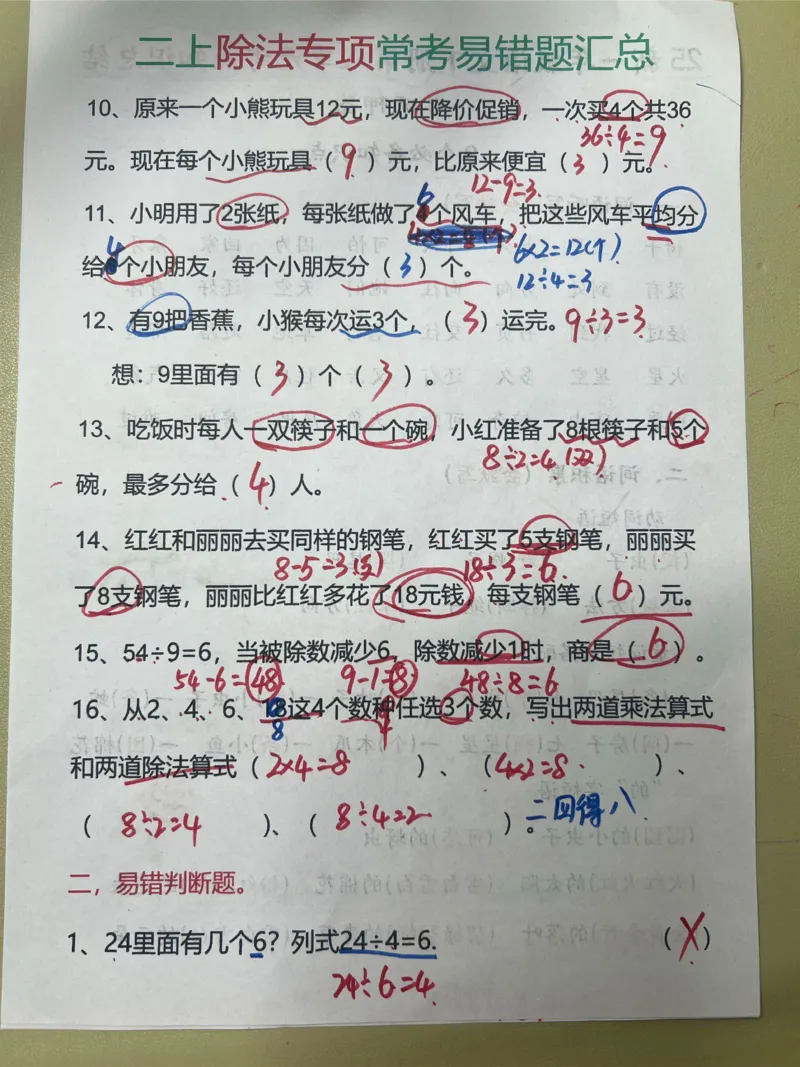 二上除法专项常考易错题汇总
10、原来一个小熊玩具12元，现在降价促销，一次买4个共36
36÷4=9
元。现在每个小熊玩具（9）元，比原来便宜（3）元。
12-9=3
11、小明用了2张纸，每张纸做了6个风车，把这些风车平均分
6×2=12(个)
给4个小朋友，每个小朋友分（3）个。
12÷4=3
12、有9把香蕉，小猴每次运3个，（3）运完。9÷3=3
想：9里面有（3）个（3）。
13、吃饭时每人一双筷子和一个碗，小红准备了8根筷子和5个
8÷2=4(双)
碗，最多分给（4）人。
14、红红和丽丽去买同样的钢笔，红红买了5支钢笔，丽丽买
8-5=3(支) 18÷3=6
了8支钢笔，丽丽比红红多花了18元钱，每支钢笔（6）元。
15、54÷9=6，当被除数减少6，除数减少1时，商是（6）。
54-6=48 9-1=8 48÷8=6
16、从2、4、6、8这4个数种任选3个数，写出两道乘法算式
8
和两道除法算式（2×4=8）、（4×2=8）、
（8÷2=4）、（8÷4=2）。二四得八
二，易错判断题。
1、24里面有几个6？列式24÷4=6.（X）
24÷6=4